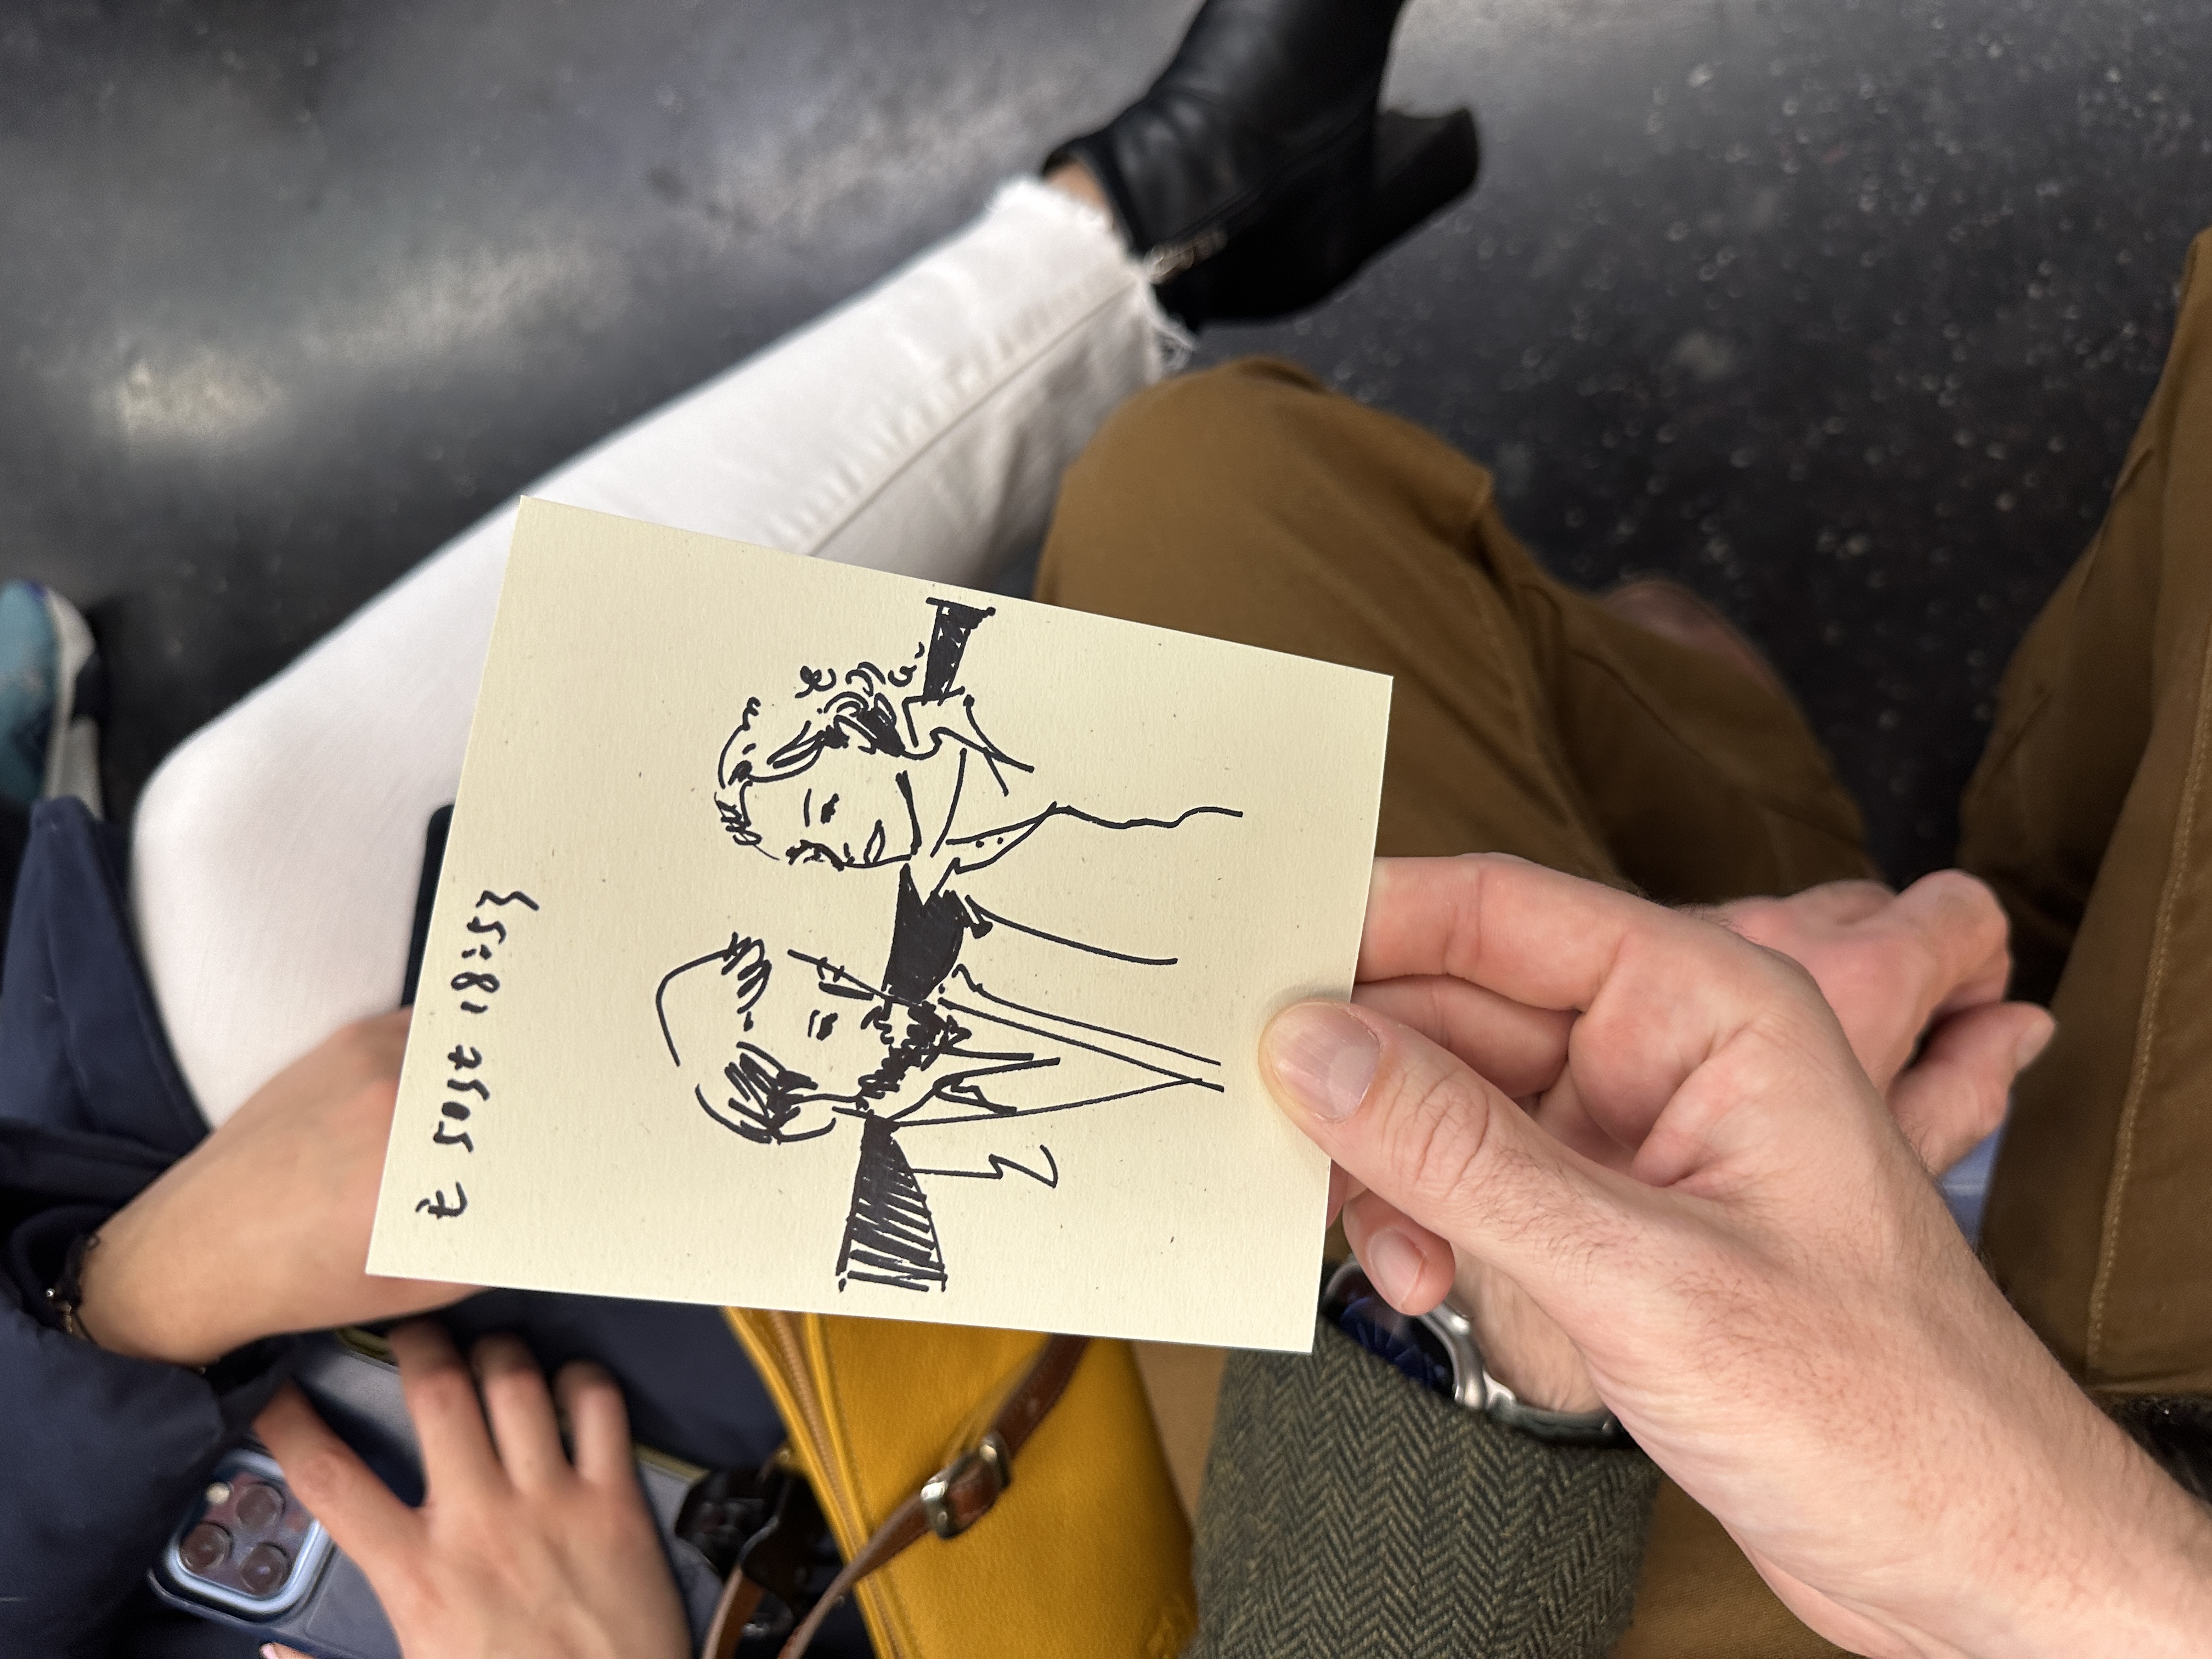 E 50st 18:53